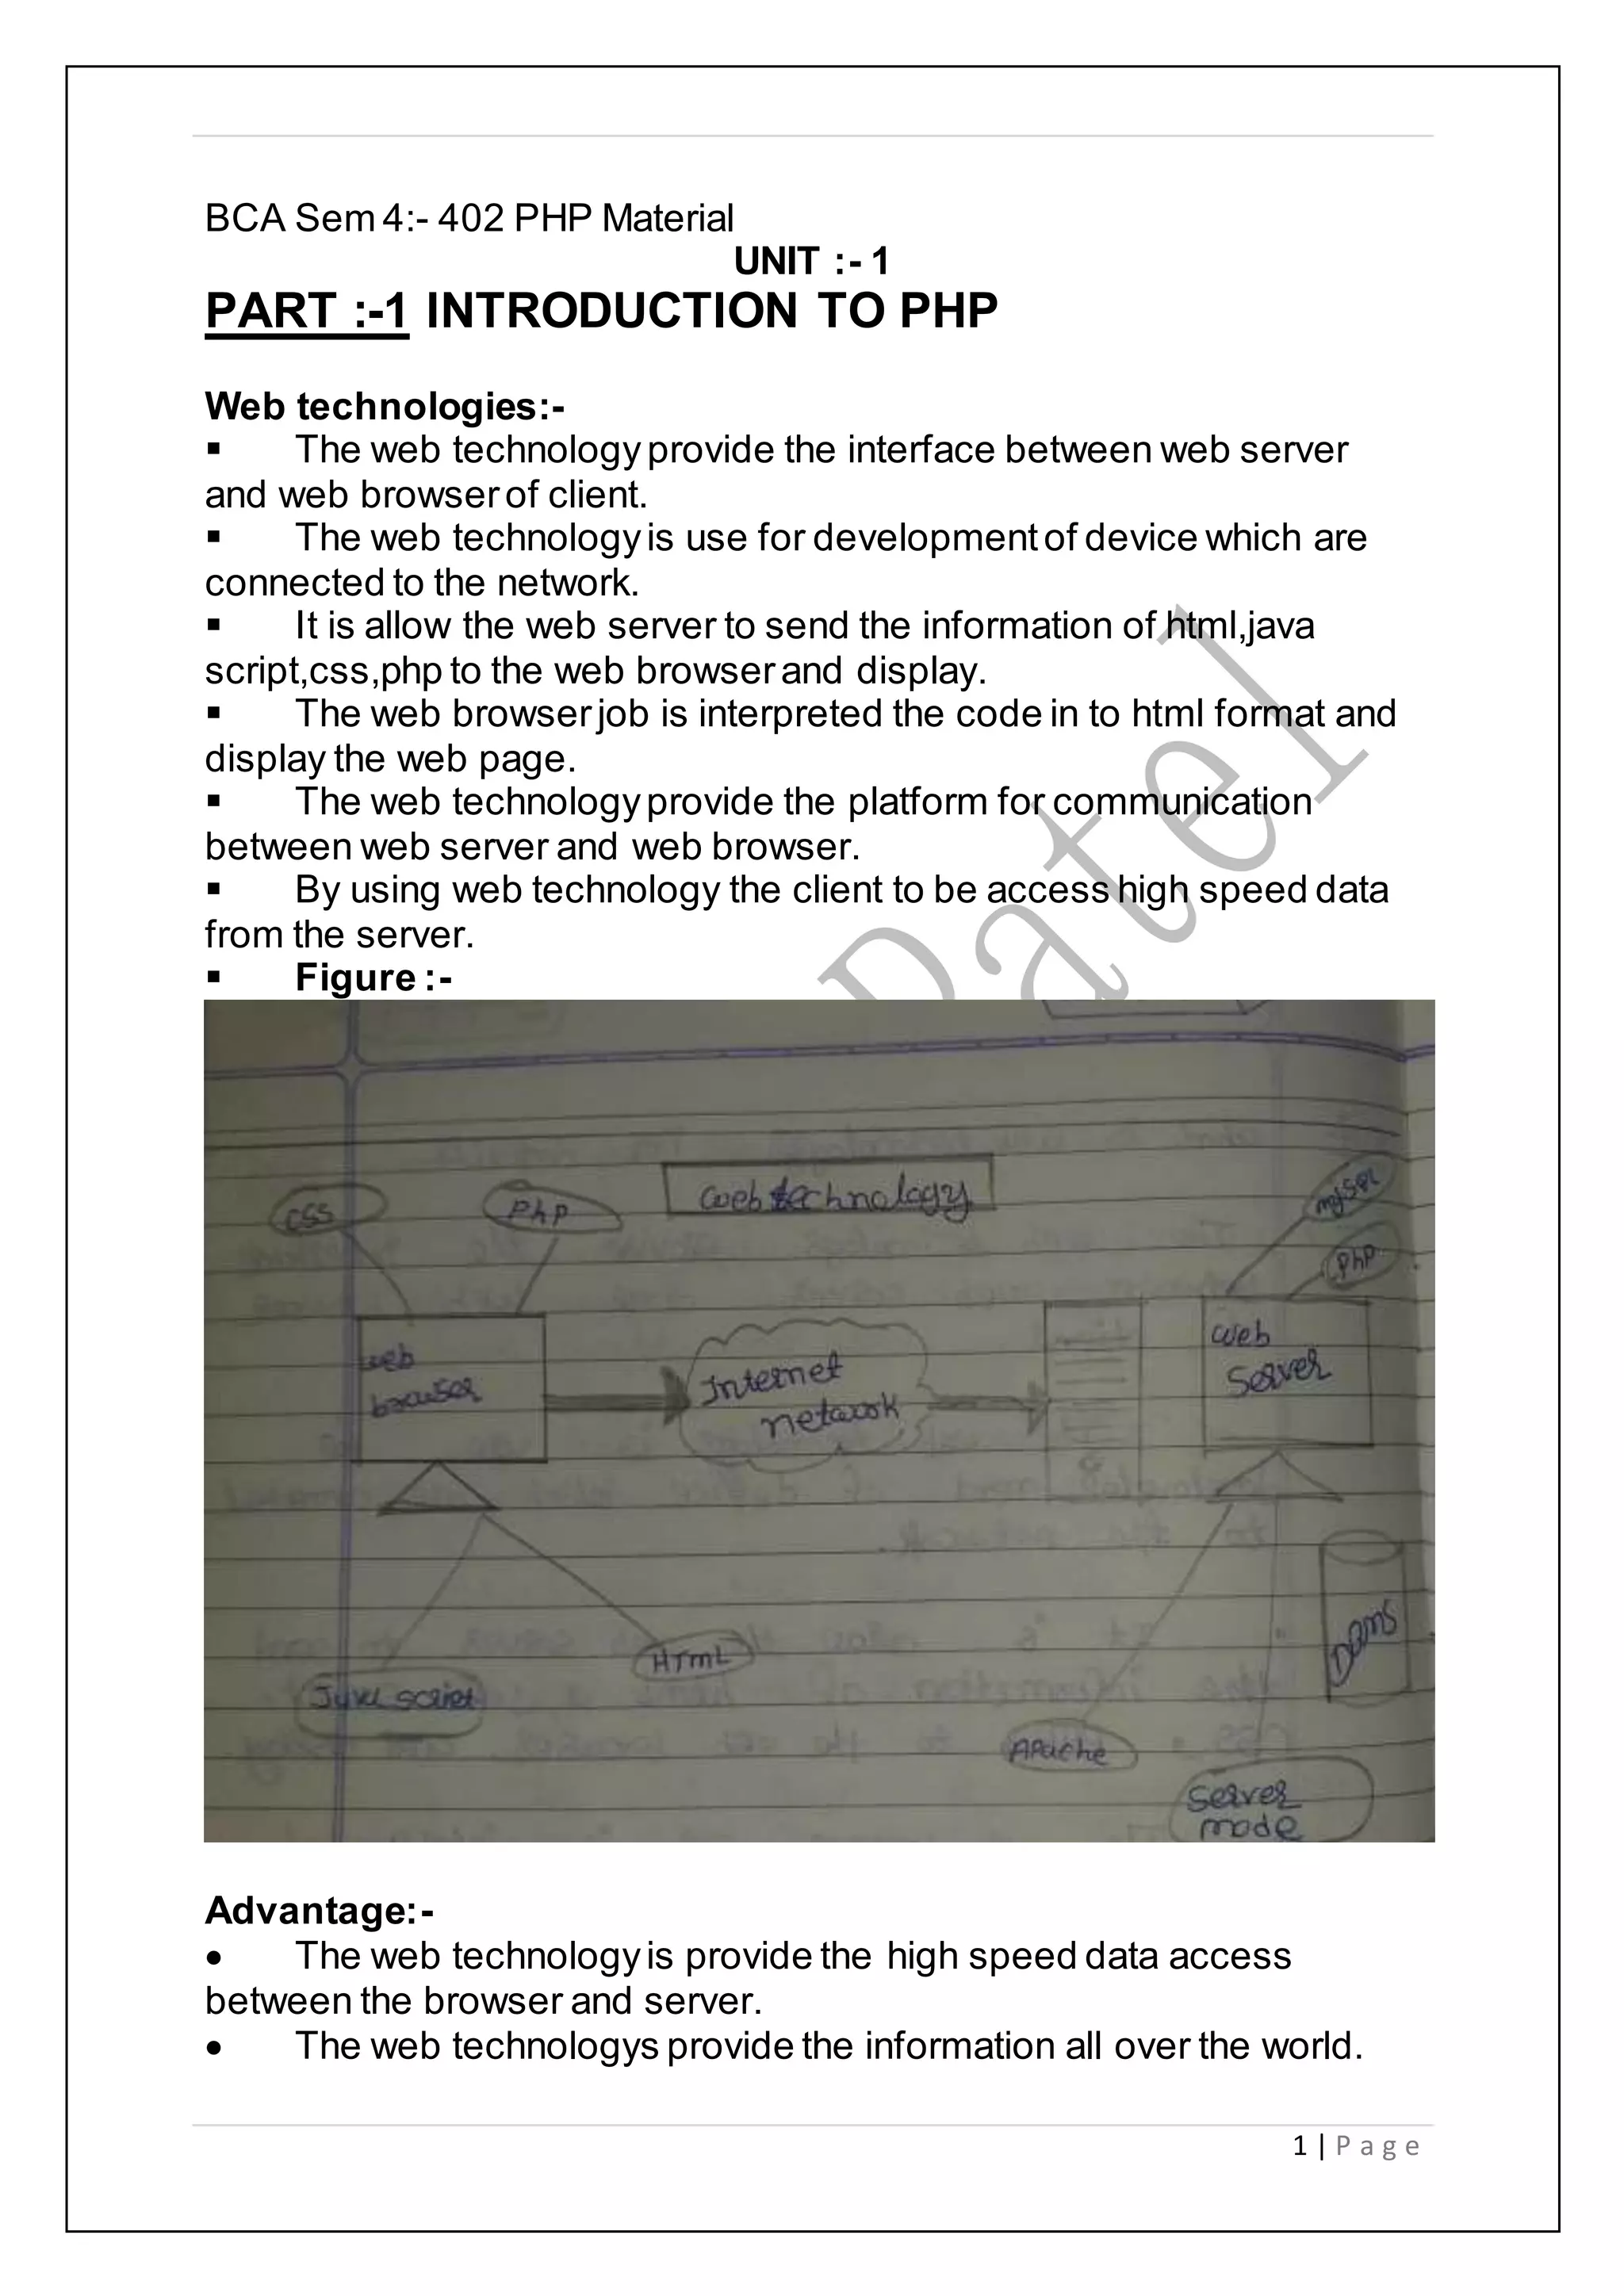 BCA Sem 4:- 402 PHP Material
UNIT :- 1
PART :-1 INTRODUCTION TO PHP
Web technologies:-
▪ The web technology provide the interface between web server
and web browser of client.
▪ The web technology is use for development of device which are
connected to the network.
▪ It is allow the web server to send the information of html,java
script,css,php to the web browser and display.
▪ The web browser job is interpreted the code in to html format and
display the web page.
▪ The web technology provide the platform for communication
between web server and web browser.
▪ By using web technology the client to be access high speed data
from the server.
▪ Figure :-
Patel
web technology
CSS
PhP
mysql
PhP
web
browser
Internet
network
web
server
HTML
Java script
DBMS
APache
server
mode
Advantage:-
• The web technology is provide the high speed data access
between the browser and server.
• The web technologys provide the information all over the world.
1 | Page